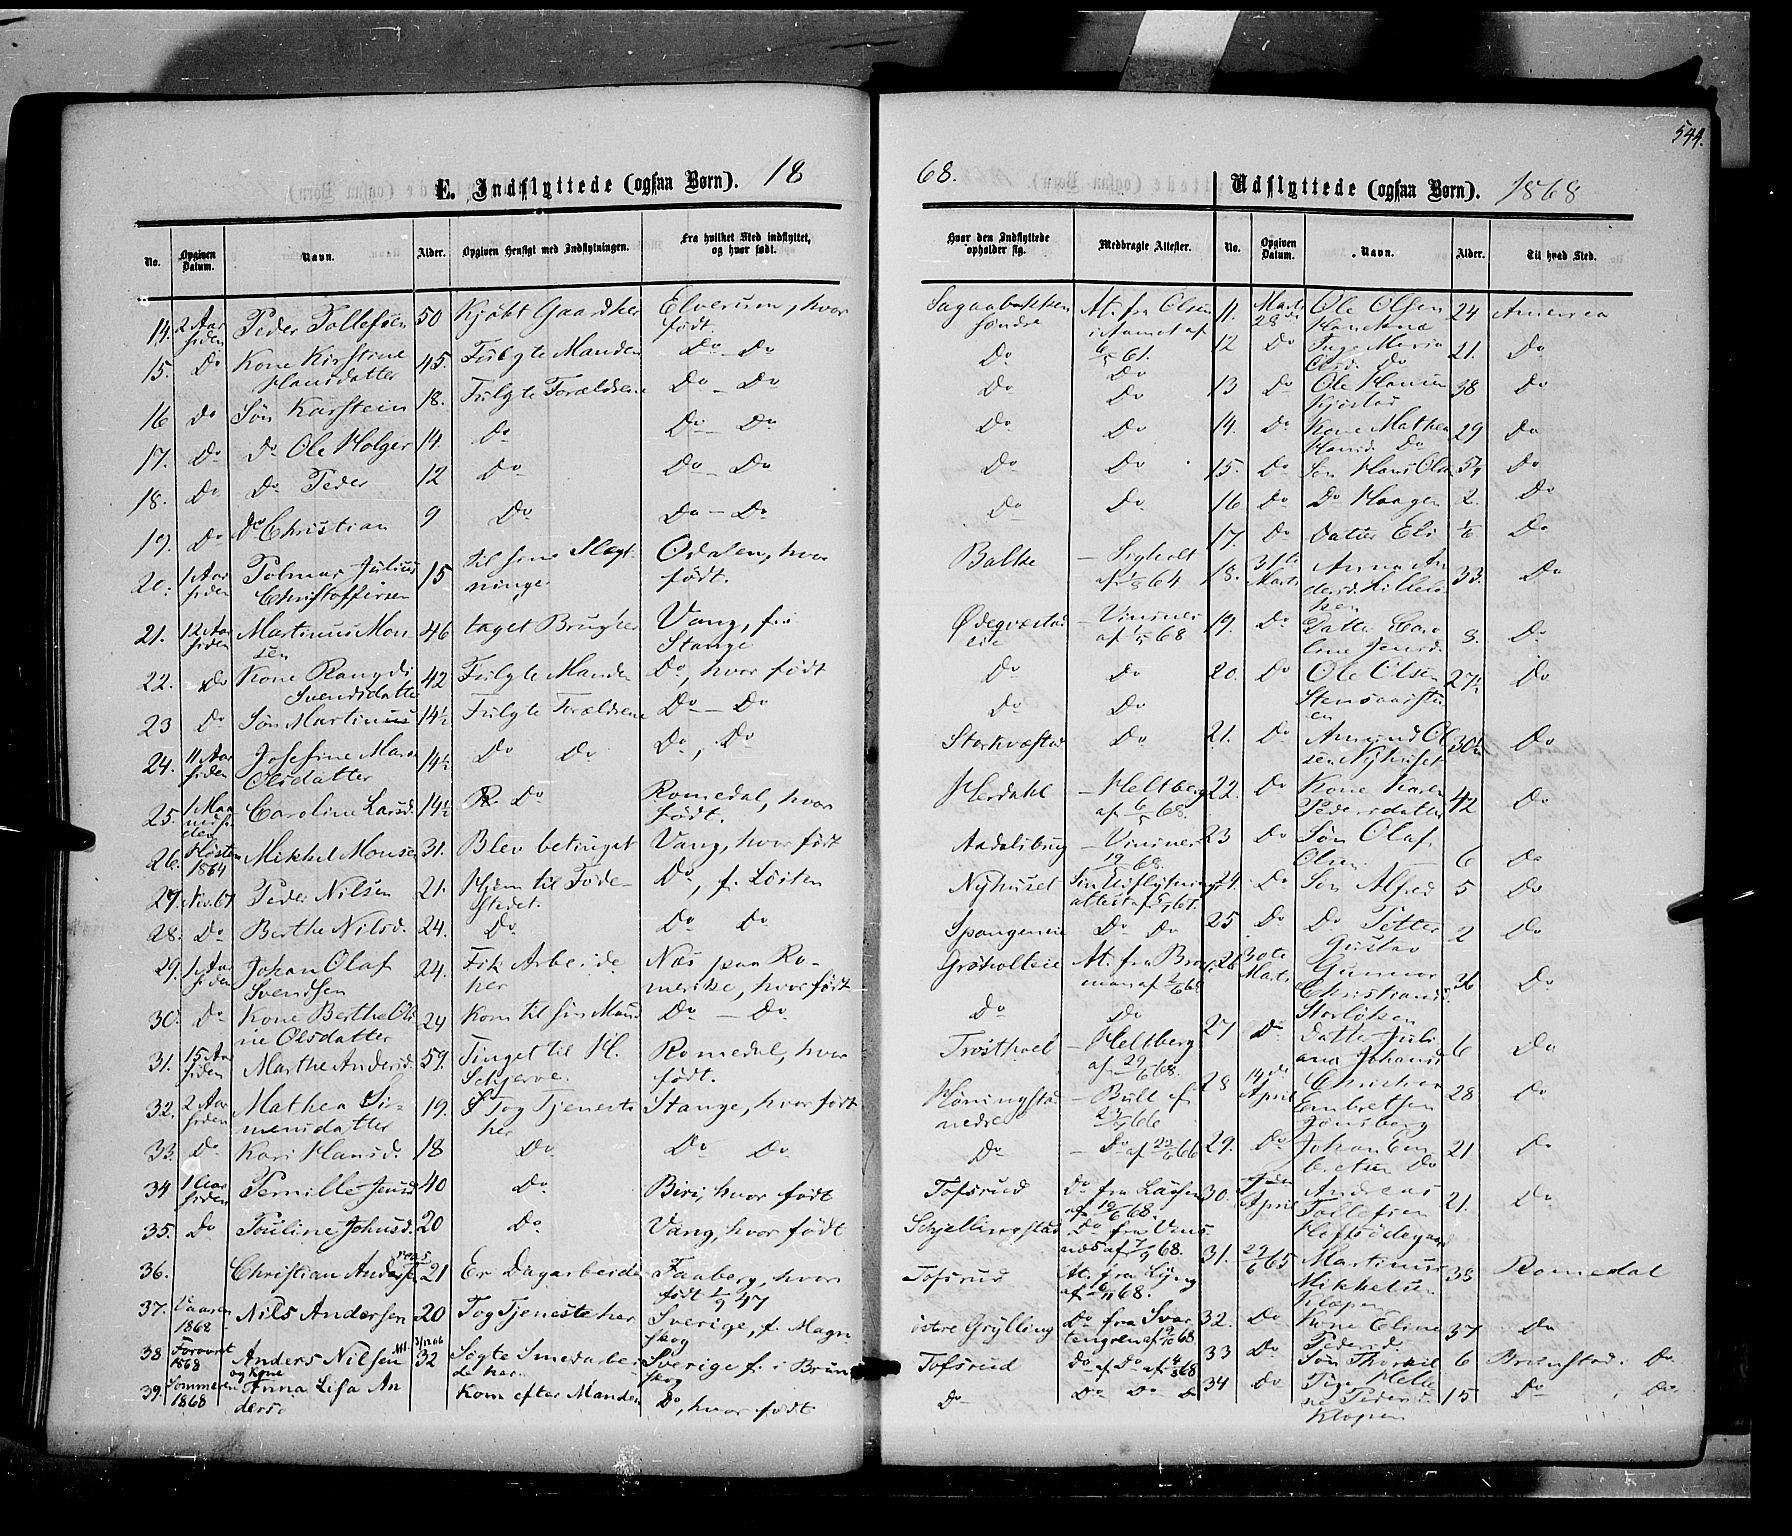 544.
E. Indflyttede (ogsaa Børn). 18
68.
Udflyttede (ogsaa Børn). 1868
No. Opgiven Datum. Navn. Alder. Opgiven Hensigt med Indflytningen. Fra hvilket Sted indflyttet, og hvor født.
Hvor den Indflyttede opholder sig. Medbragte Attester. No. Opgiven Datum. Navn. Alder. Til hvad Sted.
14. 2 Aar siden Peder Tollefsen 50 Kjøbt Gaard her Elverum, hvor født.
15. Do Kone Kirstine Hansdatter 45. Fulgte Manden Do - Do
16 Do Søn Karstein 18. Fulgte Forældrene Do - Do
17. Do Do Ole Holger 14 Do Do - Do
18. Do Do Peder 12 Do Do - Do
19. Do Do Christian 9 Do Do - Do
20. 1 Aar siden Christoffersen 15 til sine Slægtninge Odalen, hvor født.
21. 12 Aar siden Martinus Monsen 46 taget Brug her Vang, f. i Stange
22. Do Kone Rangdi Svendsdatte 42 Fulgte Manden Do, hvor født
23 Do Søn Martinus 14½ Fulgte Forældrene Do - Do
24. 11 Aar siden Josefine Marie Olsdatter 14½ Do Do Do, Do
25. 1 Maaned siden Caroline Larsd. 14½ Do Romedal, hvor født.
26. Høsten 1864 Mikkel Monsen 31. Blev betinget Vang, hvor født
27. Nov. 67 Peder Nilsen 21. Hjem til Fødestedet. Do, f. Løiten
28. Do Berthe Nilsd. 24. Do Do Do
29. 1 Aar siden Johan Olaf Svendsen 24. Fik Arbeide her Næs paa Romerike, hvor født
30. Do Kone Berthe Oline Olsdatter 24 Kom til sin Mand Do - Do
31. 15 Aar siden Marthe Andersd. 59. Tinget til H. Schjerve. Romedal, hvor født.
32. 2 Aar siden Mathea Simensdatter 19. Tog Tjeneste her Stange, hvor født
33. Do Kari Hansd. 18 Do Do Do
34 1 Aar siden Pernille Jensd. 40 Do Biri, hvor født
35. Do Pauline Johnsd. 20 Do Vang, hvor født
36. Christian Andersen 21 Er Dagarbeider Faaberg, hvor født 1/9 47
37. Vaaren 1868 Nils Andersen 20 Tog Tjeneste her Sverige, f. Magnskog
38 Foraaret 1868 Anders Nilsen og Kone 32 Søgte Smedarbeide her. Sverige f. i Brunskog
39. Sommeren 1868 Anna Lisa Anders. Kom efter Manden Do, hvor født
Sagaabakken søndre At. fra Olsen i Aamot af 6/5 61. 11. Marts 28de Ole Olsen 24 America
Do Do 12 Do Inge Maria Olsd. Do 21. Do
Do Do 13 Do Ole Hansen Kjøstad 38 Do
Do Do 14. Do Kone Mathea Hansd. Do 29 Do
Do Do 15. Do Søn Hans Olsen 5½ Do
Do Do 16 Do Do Haagen 2. Do
17. Do Datter Eli ½ Do
Balke 18. 31te Marts Anna Andersd. 33. Do
Ødegvæstadeie - Vinsnes af 1/5 68 19. Do Datter Caroline Jensd. 8. Do
Do Do 20. Do Ole Olsen 27½ Do
Do Do
Storkvæstad Do 21. Do Amund Olsen Nyhuset 30½ Do
Herdahl - Heltberg af 6/5 68. 22. Do Kone Karen Pedersdatter 42 Do
Aadalsbrug - Vinsnes 19/ 68. 23 Do Søn Olaf Olsen 6 Do
Nyhuset Sin Udflytningsattest 24. Do Søn Alfred 5 Do
Spangeneie Do Do 25 Do Do Petter Gustav 2 Do
Grøholteie At. fra 26 30te Marts Gunnor Christiansd. Storløkken 36 Do
Do Do 27 Do Datter Juliana Johansd. 6 Do
Frøsthoel - Heltberg af 29/6 68.
Høningstad nedre - Bull af 23/ 66 28 14de April Christian Embretsen Jønsberg 28 Do
Do - Do af 22/6 66 29. Do Johan Embretsen Do 21 Do
Tofsrud Do fra Laasen 30. April Andreas Tollefsen 21. Do
Schjellingstad Do fra Vensnes af 7/9 68.
Tofsrud At. fra Lyng 31. 29/6 65 Martinus Mikkelsen Klæpen 38 Romedal
østre Grylling Do fra Svartengren 32. Do Kone Eline Pedersd. 37 Do
Tofsrud Do af Do 33 Do Søn Thorkil 6 Brunstad. Do
Do Do Do Do 34 Do Pige Helene Peders. Klæpen 15 Do, Do